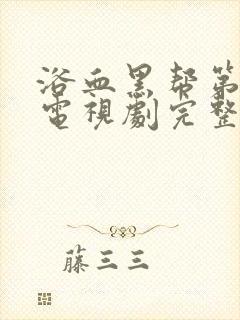 浴血黑帮第
電視劇完整
藤三三